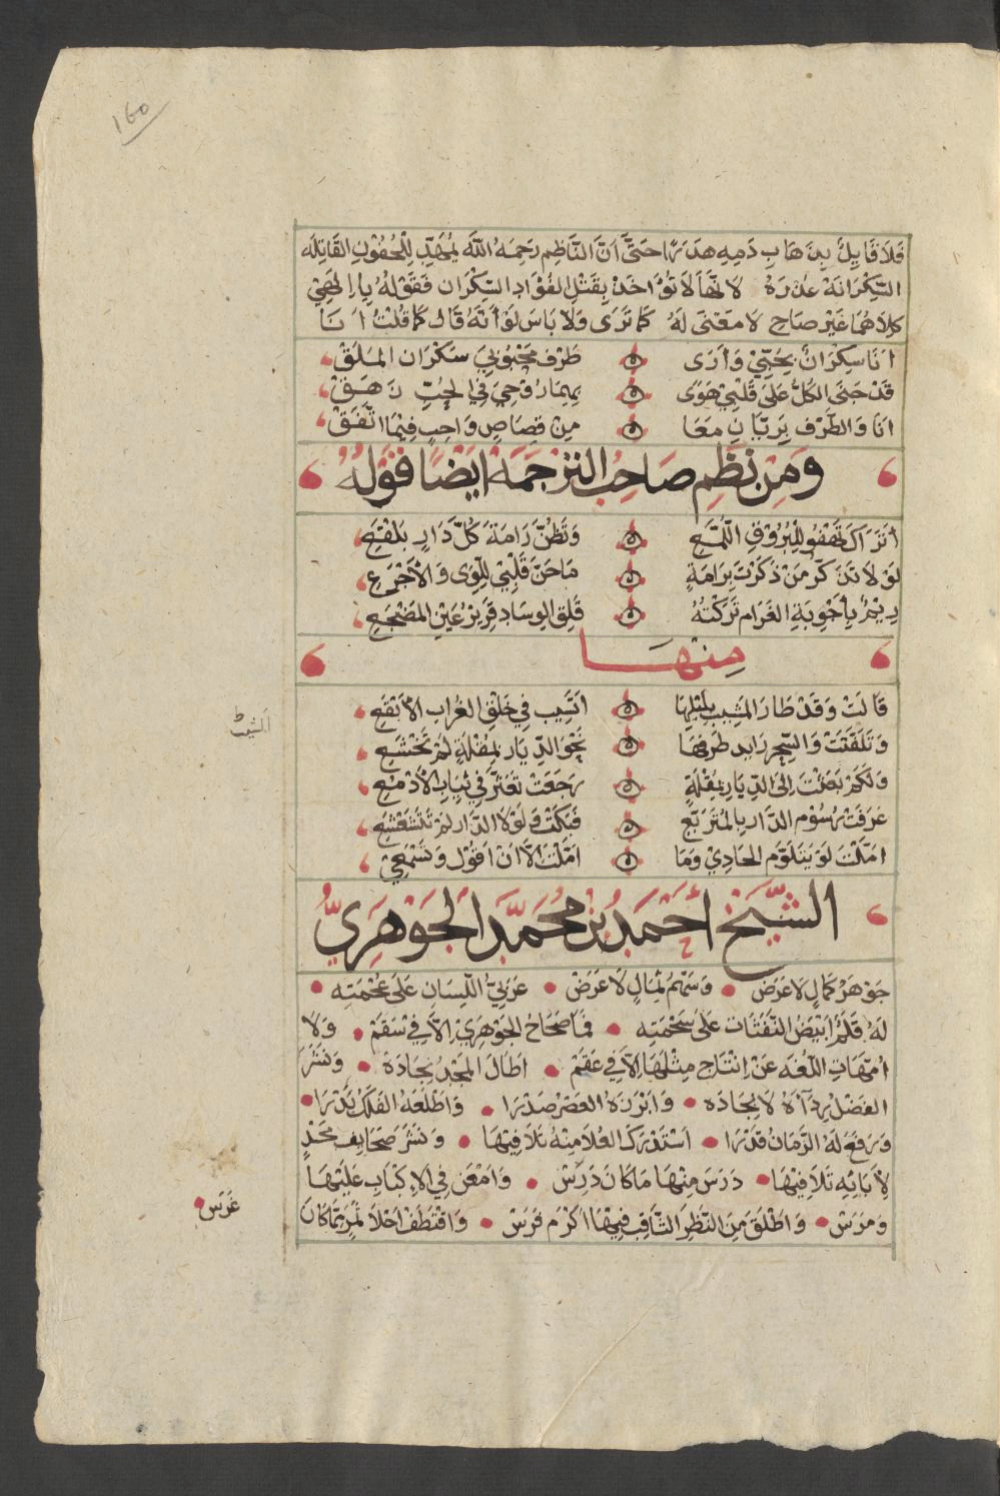 160
فَلَا قَايِلَ بِذَهَابِ دَمِهِ هَدَرًا حَتَّى أَنَّ النَّاظِم رَحِمَهُ اللَّه يُمَهِّد لِلْجُفُوْنِ القَاتِلَه
السَّكْرَانَة عُذرَهُ لِانَّهَا لَا تُؤَاخَذُ بِقَتْلِ الفُؤَادِ السَّكْرَان فَقَوْلُهُ يَا الهِي
كِلَاهُمَا غَيْر صَاحٍ لَا مَعْنَى لَهُ كَمَا تَرَى وَلَا بَاسَ لَوْ أَنَّهُ قَالَ كَمَا قُلْتُ أَنَا
أَنَا سَكْرَانٌ بِحُبِّيْ وَأَرَى طَرْف مَحْبُوْبِيَ سَكْرَان المَلَقْ
قَدْ جَنَى الكُلُّ عَلَى قَلْبِيْ هَوًى رُوْحِيَ فِي الحُبِّ زَهَقْ
أَنَا وَالطَّرْف بَرِيَّانِ مَعًا مِنْ قِصَاصٍ وَاجِبٍ فِيْمَا اتَّفَقْ
وَمِنْ نَظْمِ صَاحِبُ التَّرْجَمَة اَيْضًا قَوْلُهُ
أَتَرَاكَ تَهْفُو لِلْبُرُوْقِ اللُّمَّعِ وَتَظُنّ رَامَةَ كُلَّ دَارٍ بَلْقَعِ
لَوْلَا تَذَكّر مَنْ ذَكَرْتَ بِرَامَةٍ مَا حَنَّ قَلْبِيْ لِلِّوَى وَالأَجْرَعِ
رِيْمٌ بِأَجْوِبَةِ الغَرَام تَرَكْتُهُ قَلِقَ الوِسَادِ قَرِيْرُ عَيْنِ المَضْجَعِ
مِنْهَا
قَالَتْ وَقَدْ طَارَ المَشِيب بِلَيْلِهَا اَنَّسِب فِي حَلْقِ الغُرَابِ الأَبْقَعِ
وَتَلَفَّتَتْ وَالسِّحْر رَايِد طَرْفِهَا نَحْوَ الدِّيَار بِمُقْلَةٍ لَمْ تَخْشَعِ
وَلَكَمْ بَعَثْتَ اِلَى الدِّيَارِ بِمُقْلَةٍ رَجَعَتْ تَعَثَّرُ فِي ثِيَابِ الأَدْمُعِ
عَرَفَتْ رُسُوْم الدَّار بِالمُتَرَبّع فَبَكَتْ وَلَوْلَا الدَّار لَمْ تَتَقَشَّعِ
اَمَّلْتُ لَوْ يَتَلَوَّم الحَادِيْ وَمَا اَمَّلْتُ اِلَّا اَنْ اَقُوْل وَتَسْمَعِي
الشَّيْخ أَحْمَدُ بْنُ مُحَمَّد الجَوْهَرِيُّ
جَوْهَرُ كَمَالٍ لَا عَرَض وَسَهْمُ لَا غَرَض عَرَبِيُّ اللِّسَانِ عَلَى عُجْمَتِه
لَهُ قَلَمٌ اَبْيَضُ النَّفَثَات عَلَى سُحْمَتِه فَمَا صَحَاحُ الجَوْهَرِيْ اِلَّا فِيْ سَقَمْ وَلَا
اُمَّهَاتِ اللُّغَة عَنْ اِنْتَاجِ مِثْلِهَا اِلَّا فِي عَقَمْ اَطَالَ المَجْدُ نِجَادَهْ وَنَشَرَ
الفَضْلُ رِدَاءَهُ لِانْجَادَه وَاَبْرَزَهُ العَصْرُ صَدْرَا وَاَطْلَعَهُ الفَلَكُ بَدْرَا
وَرَفَعَ لَهُ الزَّمَانُ قَدْرَا اَسْتَدْرَكَ العُلَا مِنْهُ تَلَافِيْهَا وَنَشَرَ صَحَايِف مَجْدٍ
لِأَبَائِهِ تَلَا فِيْهَا دَرَسَ مِنْهَا مَا كَانَ دَرَسْ وَاَمْعَن فِي الاِكْبَابِ عَلَيْهَا
وَمَرَسْ وَاَطْلَقَ مِنَ النَّظَرِ الثَّاقِب فِيْهَا اَكْرَم فَرَسْ وَاقْتَطَفَ اَحْلَا ثَمَرِ مَا كَانَ
غَرَسْ